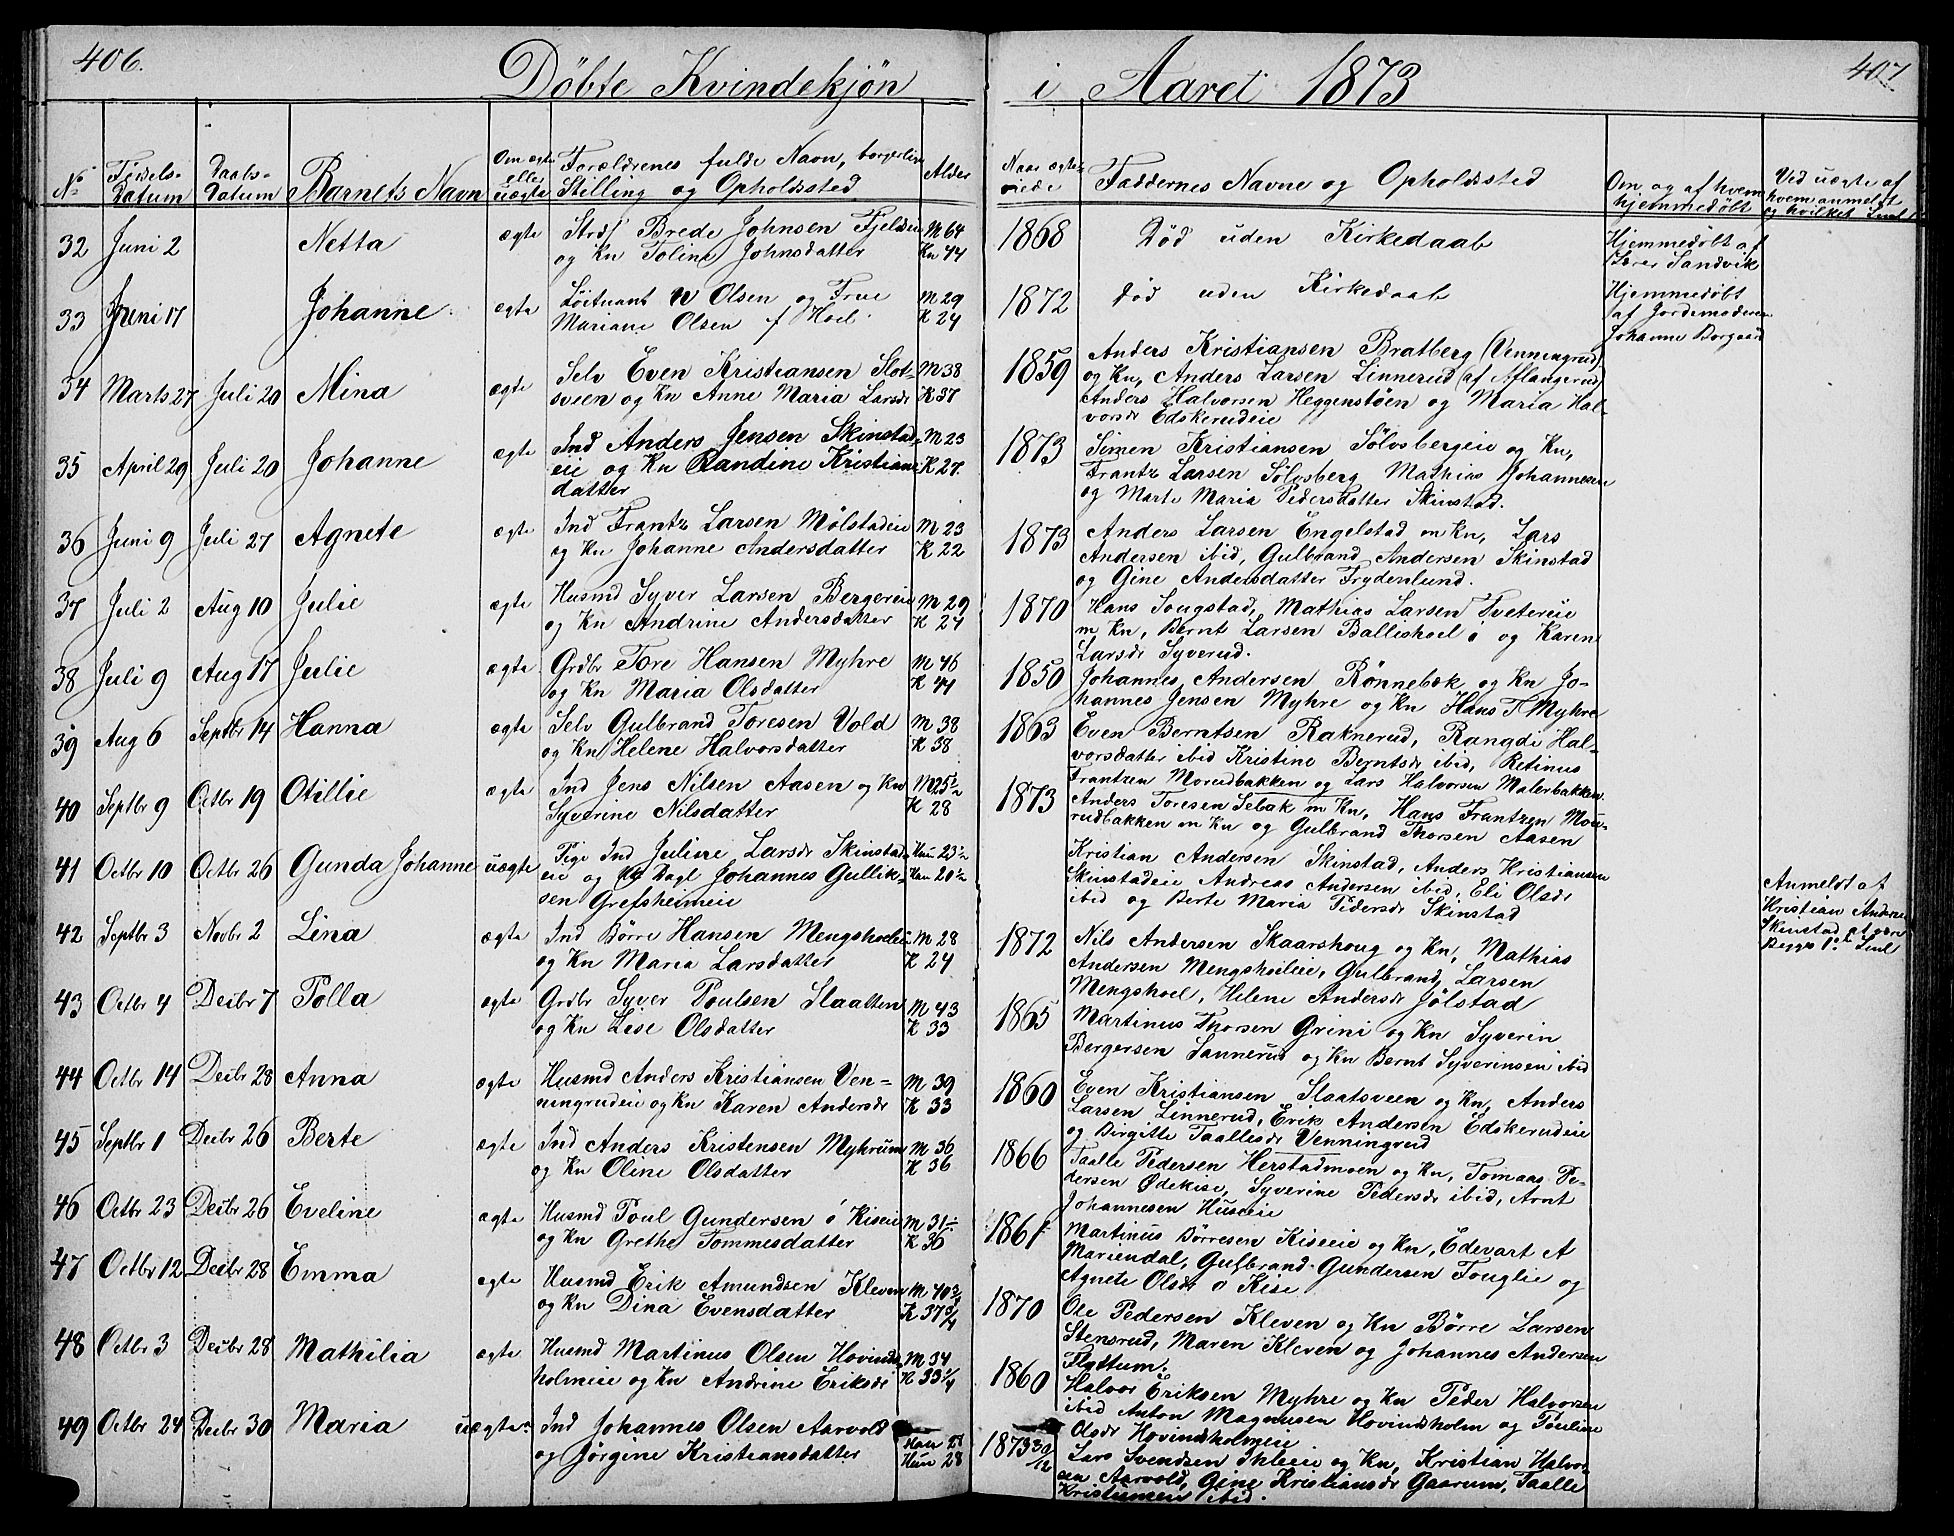 406.
Döbte Kvindekjön
i Aaret 1873
407
No
Fødsels-
Datum
Daabs-
Datum
Barnets Navn
Om ægte
eller
uægte
Forældrenes fulde Navn, borgerlig
Stilling og Opholdssted
Alder
Naar ægte-
viede
Faddernes Navne og Opholdssted
Om og af hvem
hjemmedøbt
Ved uægte af
hvem anmeldt
og hvilket
32 Juni 2 Netta ægte Brede Johnsen Fjeldseie M 64
og Kn Toline Johnsdatter Kn 44
1868 Död uden Kirkedaab
Hjemmedöbt af
Sandvik
33 Juni 17 Johanne ægte Löitnant Olsen og Frue M 29
Mariane Olsen f Hoel K 24
1872 död uden Kirkedaab
Hjemmedöbt
af Jordemoderen
Johanne Borgaas
34 Marts 27 Juli 20 Mina ægte Selv Even Kristiansen Slot- M 38
sveen og Kn Anne Maria Larsdr K 37
1859 Anders Kristiansen Bratberg (Venningrud)
og Kn, Anders Larsen Linnerud (af Aflangerud)
Anders Halvorsen Heggenstöen og Maria Hal-
vorsdr Edskerudeie
35 April 29 Juli 20 Johanne ægte Ind Anders Jensen Skinstad- M 23
eie og Kn Randine Kristians K 27
datter
1873 Simen Kristiansen Sölvsbergeie og Kn,
Frantz Larsen Sölvsberg Mathias Johannesen
og Marte Maria Pedersdatter Skinstad.
36 Juni 9 Juli 27 Agnete ægte Ind Frantz Larsen Mölstadeie M 23
og Kn Johanne Andersdatter K 22
1873 Anders Larsen Engelstad m Kn, Lars
Andersen ibid, Gulbrand Andersen Skinstad
og Gine Andersdatter Frydenlund.
37 Juli 2 Aug 10 Julie ægte Husmd Syver Larsen Bergereie M 29
og Kn Andrine Andersdatter K 24
1870 Hans Sougstad, Mathias Larsen Tvetereie
m Kn, Bernt Larsen Ballishoel ö og Karen
Larsdr Syverud.
38 Juli 9 Aug 17 Julie ægte Grdbr Tore Hansen Myhre M 46
og Kn Maria Olsdatter K 44
1850 Johannes Andersen Rönnebek og Kn Jo-
hannes Jensen Myhre og Kn Hans T Myhre
39 Aug 6 Septbr 14 Hanna ægte Selv Gulbrand Toresen Vold M 38
og Kn Helene Halvorsdatter K 38
1863 Even Berntsen Raknerud, Rangdi Hal-
vorsdatter ibid Kristine Berntsdr ibid, Retinus
Frantzen Morudbakken og Lars Halvorsen Malerbakken.
40 Septbr 9 Octbr 19 Otillie ægte Ind Jens Nilsen Aasen og Kn M 25½
Syverine Nilsdatter K 28
1873 Anders Toresen Sebak m Kn, Hans Frantzen Mou-
rudbakken m Kn og Gulbrand Thorsen Aasen
41 Octbr 10 Octbr 26 Gunda Johanne uægte Pige Ind Juliane Larsdr Skinstad- Hun 23½
eie og Dagl Johannes Gullik- Han 20½
sen Grefsheimeie
Kristian Andersen Skinstad, Anders Kristiansen
Skinstadeie Andreas Andersen ibid, Eli Olsdr
ibid og Berte Maria Pedersdr Skinstad
Anmeldt af
Kristian Andersen
Skinstad
Begges 1ste
42 Septbr 3 Novbr 2 Lina ægte Ind Börre Hansen Mengshoeleie M 28
og Kn Maria Larsdatter K 24
1872 Nils Andersen Skaarshoug og Kn, Mathias
Andersen Mengshoeleie, Gulbrand Larsen
Mengshoel, Helene Andersdr Jölstad
43 Octbr 4 Decbr 7 Polla ægte Grdbr Syver Poulsen Slaatten M 43
og Kn Lise Olsdatter K 33
1865 Martinus Thorsen Grini og Kn Syverin
Bergersen Sannerud og Kn Bernt Syverinsen ibid
44 Octbr 14 Decbr 28 Anna ægte Husmd Anders Kristiansen Ven- M 39
ningrudeie og Kn Karen Andersdr K 33
1860 Even Kristiansen Slaatsveen og Kn, Anders
Larsen Linnerud, Erik Andersen Edskerudeie
og Birgitte Taallesdr Venningrud
45 Septbr 1 Decbr 26 Berte ægte Ind Anders Kristensen Myhrum M 36
og Kn Oline Olsdatter K 36
1866 Taalle Pedersen Herstadmoen og Kn, Tomaas Pe-
dersen Ödekise, Syverine Pedersdr ibid, Arnt
Johannesen Huseeie
46 Octbr 23 Decbr 26 Eveline ægte Husmd Poul Gundersen ö Kiseie M 31½
og Kn Grethe Tommesdatter K 36
1861 Martinus Börresen Kiseeie og Kn, Edevart A
Mariendal, Gulbrand Gundersen Fouglie og
Agnete Olsdr ö Kise
47 Octbr 12 Decbr 28 Emma ægte Husmd Erik Amundsen Kleven M 40¾
og Kn Dina Evensdatter K 37¾
1870 Ole Pedersen Kleven og Kn Börre Larsen
Stensrud, Maren Kleven og Johannes Andersen
Flyttum.
48 Octbr 3 Decbr 28 Mathilia ægte Husmd Martinus Olsen Hovinds- M 34
holmeie og Kn Andrine Eriksdr K 33¼
1860 Halvor Eriksen Myhre og Kn Peder Halvorsen
ibid Anton Magnusen Hovindsholm og Pouline
Olsdr Hovindsholmeie
49 Octbr 24 Decbr 30 Maria uægte Ind Johannes Olsen Aarvold Han 28
og Jörgine Kristiansdatter Hun 28
1873 30/12 Lars Svendsen Ihleeie og Kn, Kristian Halvor-
sen Aarvold, Gine Kristiansdr Gaarum, Taalle
Kristiansen ibid.